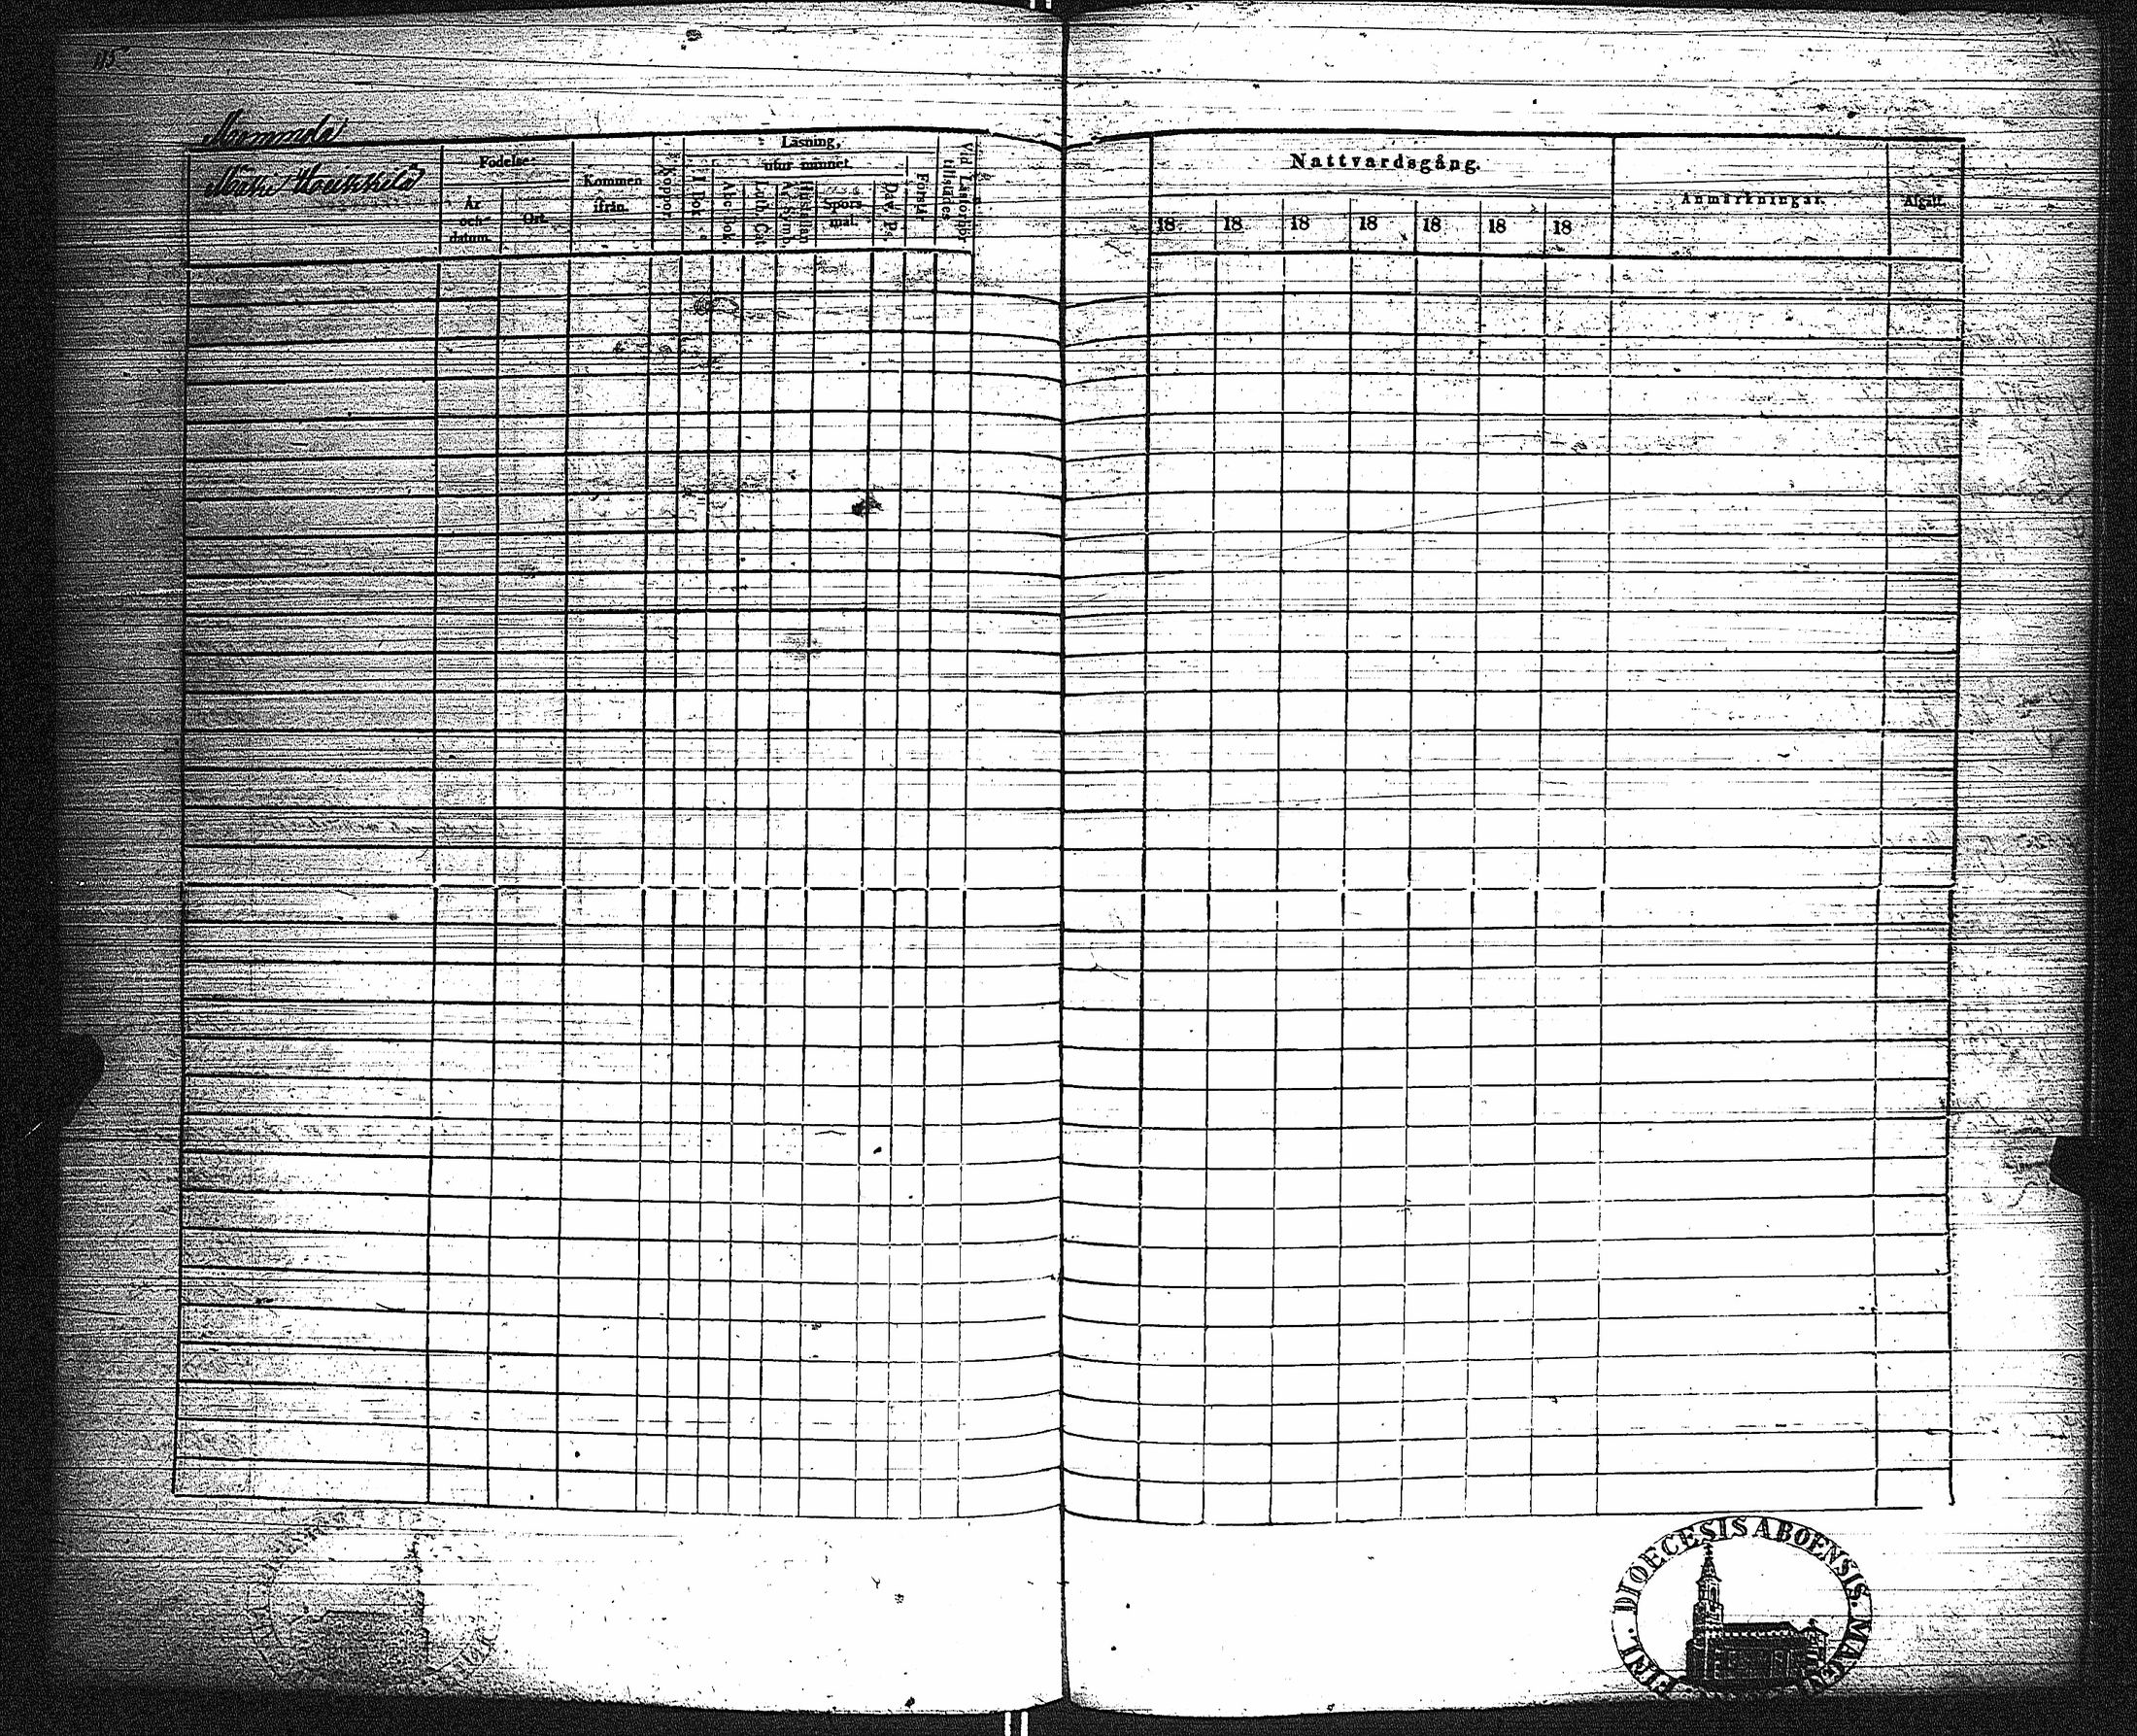 115
Mommola
Födelse-
År och datum.
Ort.
Kommen ifrån.
Koppor.
Läsning,
I Bok.
utur minnet.
Abc Bok.
Luth. Cat.
Hustaflan A. Symb.
Spörs mål.
Dav. Ps.
Förstår.
Vid Läsförhör tillstädes.
Nattvardsgång.
18 18 18 18 18 18 18
Anmärkningar.
Afgått.
DIOECESIS ABOENSIS. MAGN FINL.